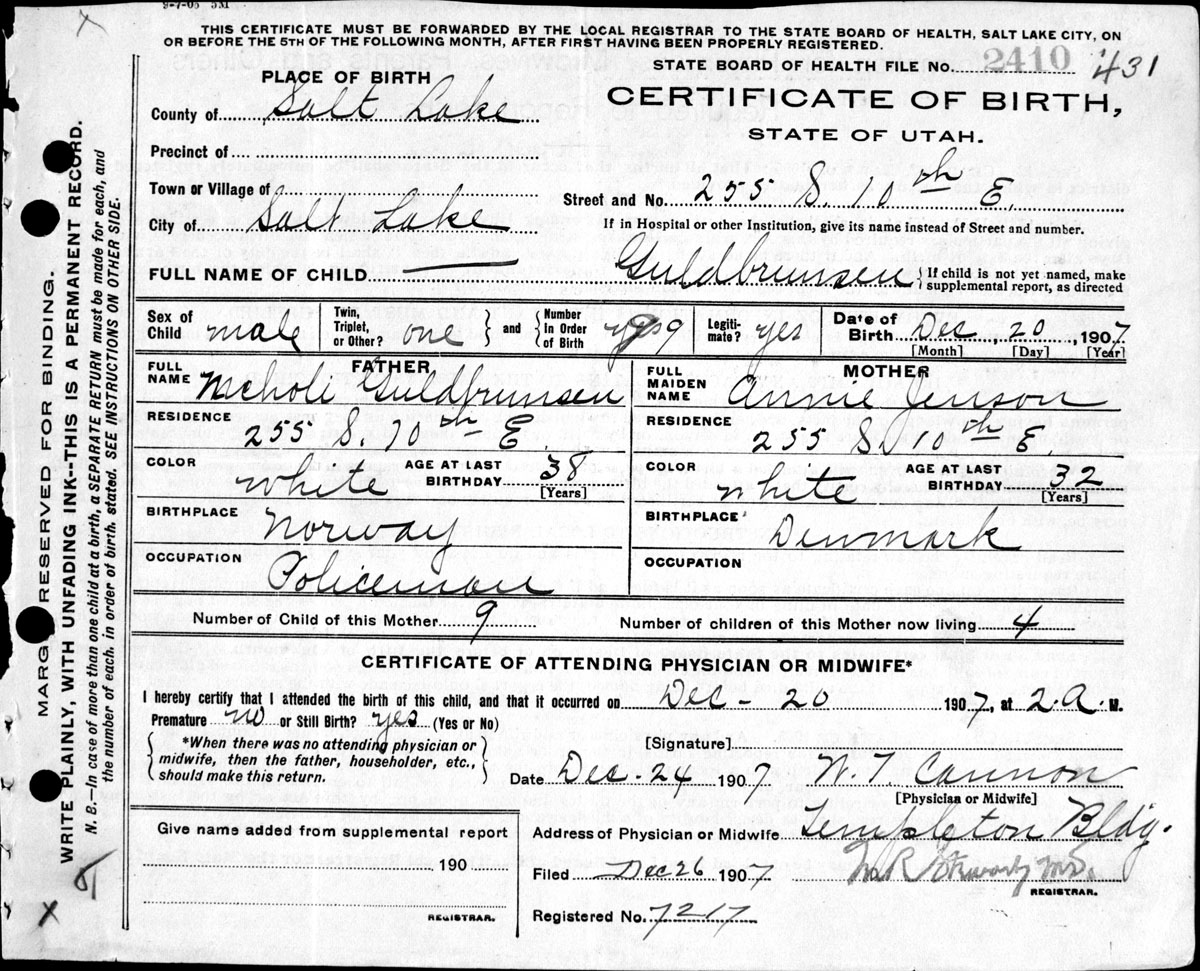 9-7-05 3M
THIS CERTIFICATE MUST BE FORWARDED BY THE LOCAL REGISTRAR TO THE STATE BOARD OF HEALTH, SALT LAKE CITY, ON
OR BEFORE THE 5TH OF THE FOLLOWING MONTH, AFTER FIRST HAVING BEEN PROPERLY REGISTERED.
STATE BOARD OF HEALTH FILE No. 2410 431
PLACE OF BIRTH
CERTIFICATE OF BIRTH,
STATE OF UTAH.
County of Salt Lake
Precinct of
Town or Village of
Street and No. 255 S. 10th E.
City of Salt Lake
If in Hospital or other Institution, give its name instead of Street and number.
FULL NAME OF CHILD Guldbrunsen { If child is not yet named, make supplemental report, as directed
Sex of Child male Twin, Triplet, or Other? one } and { Number In Order of Birth 9 Legiti-mate? yes Date of Birth Dec, 20, 1907
[Month] [Day] [Year]
FATHER
FULL NAME Nicholi Guldbrunsen
RESIDENCE 255 S. 10th E.
COLOR white AGE AT LAST BIRTHDAY 38 [Years]
BIRTHPLACE Norway
OCCUPATION Policeman
MOTHER
FULL MAIDEN NAME Annie Jenson
RESIDENCE 255 S. 10th E.
COLOR white AGE AT LAST BIRTHDAY 32 [Years]
BIRTHPLACE Denmark
OCCUPATION
Number of Child of this Mother 9 Number of children of this Mother now living 4
CERTIFICATE OF ATTENDING PHYSICIAN OR MIDWIFE*
I hereby certify that I attended the birth of this child, and that it occurred on Dec - 20 1907, at 2.A.M.
Premature no or Still Birth? yes (Yes or No)
{ *When there was no attending physician or midwife, then the father, householder, etc., should make this return. }
[Signature]
Date Dec - 24 1907 W. T. Cannon
[Physician or Midwife]
Give name added from supplemental report
190
REGISTRAR.
Address of Physician or Midwife Templeton Bldg.
Filed Dec 26 1907
REGISTRAR.
Registered No. 7217
MARGIN RESERVED FOR BINDING.
WRITE PLAINLY, WITH UNFADING INK--THIS IS A PERMANENT RECORD.
N. B.—In case of more than one child at a birth, a SEPARATE RETURN must be made for each, and
the number of each, in order of birth, stated. SEE INSTRUCTIONS ON OTHER SIDE.